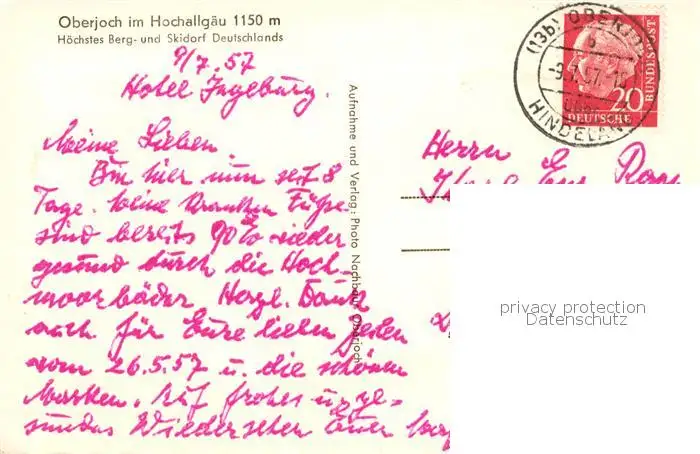 Oberjoch im Hochallgäu 1150 m
Höchstes Berg- und Skidorf Deutschlands
9/7.57
Hotel Ingeburg.
Meine Lieben
Bin hier nun seit 8
Tage. Meine kranken Füße
sind bereits 90% wieder
gesund durch die Hoch-
moorbäder Herzl. Dank
auch für Eure lieben Zeilen
vom 26.5.57 u. die schönen
Marken. Auf frohes u. ge-
sundes Wiedersehen Euer
Aufnahme und Verlag: Photo Nachbaur, Oberjoch
(13b) OBERJO
9.7.57
HINDELAN
20
DEUTSCHE
BUNDESPOST
Herrn
privacy protection
Datenschutz